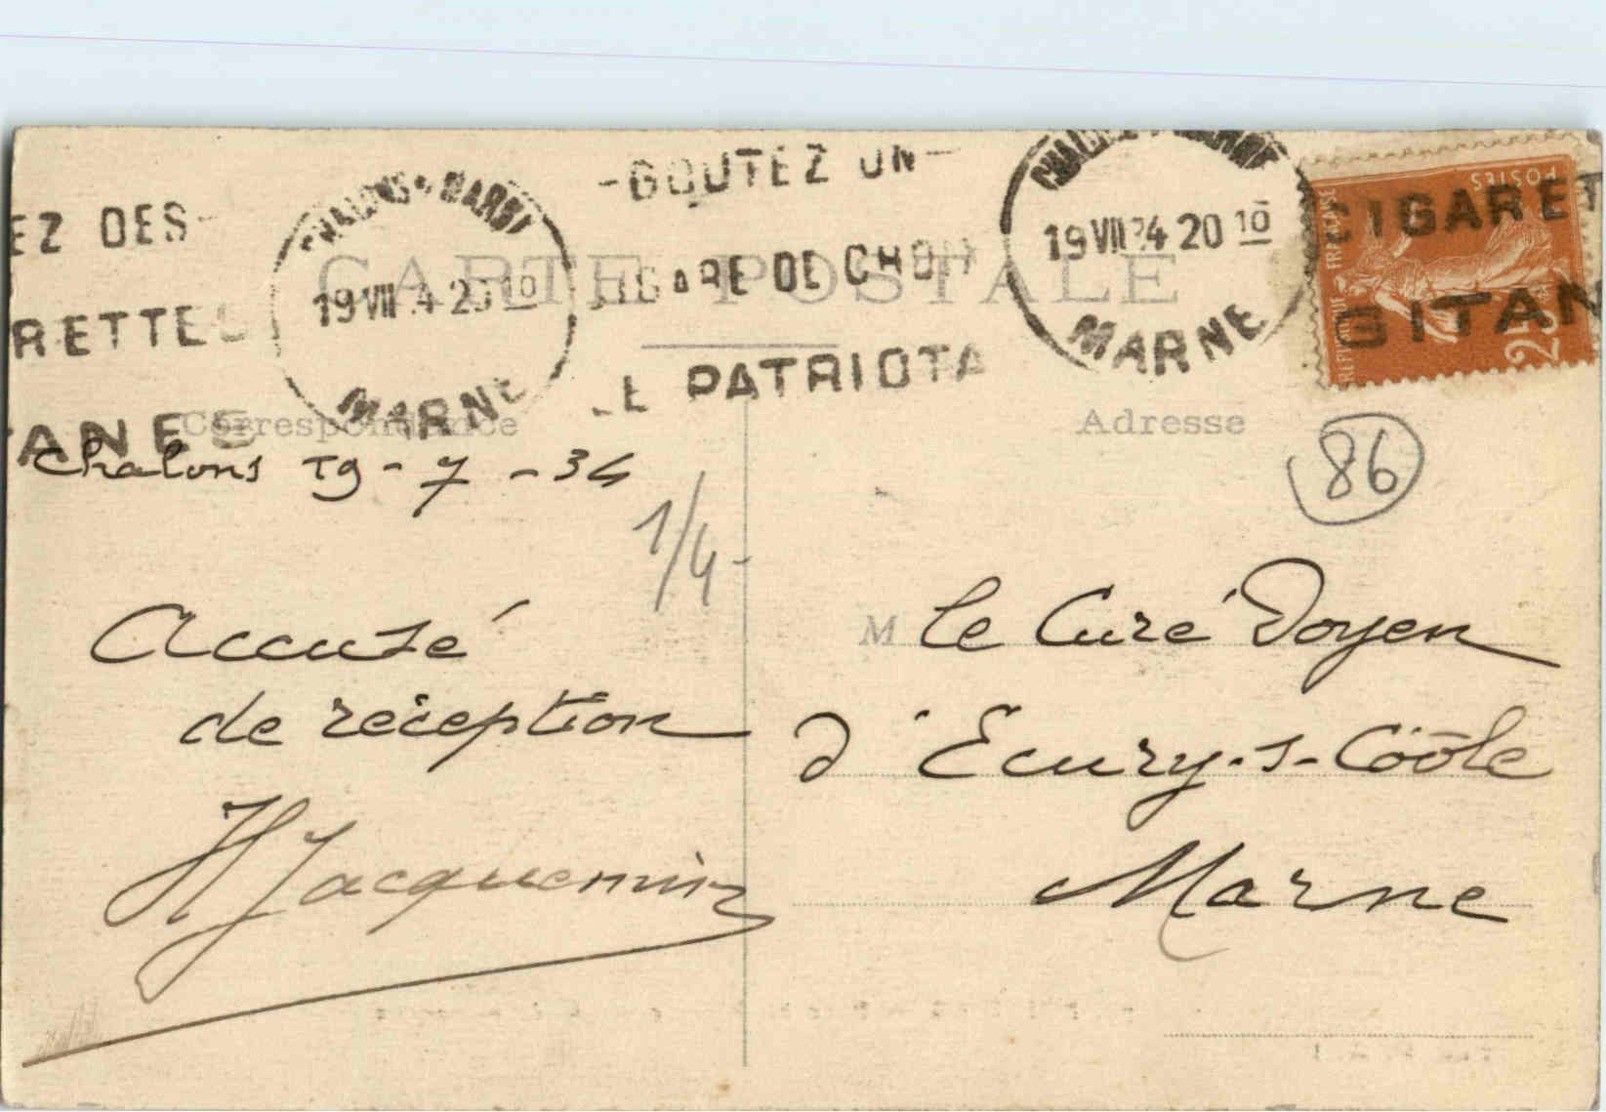 -GOUTEZ UN-
CIGARE DE CHOIX
LE PATRIOTA
EZ DES-
RETTES
ANES
CHALONS s. MARNE
19 VII 34 20 10
MARNE
CHALONS s. MARNE
19 VII 34 20 10
MARNE
CIGARET
GITAN
POSTES
25
CARTE POSTALE
Correspondance
Adresse
Chalons 19-7-34
1/4-
86
Accusé
de réception
HJacquemin
M le Curé Doyen
d'Ecury-s-Coole
Marne